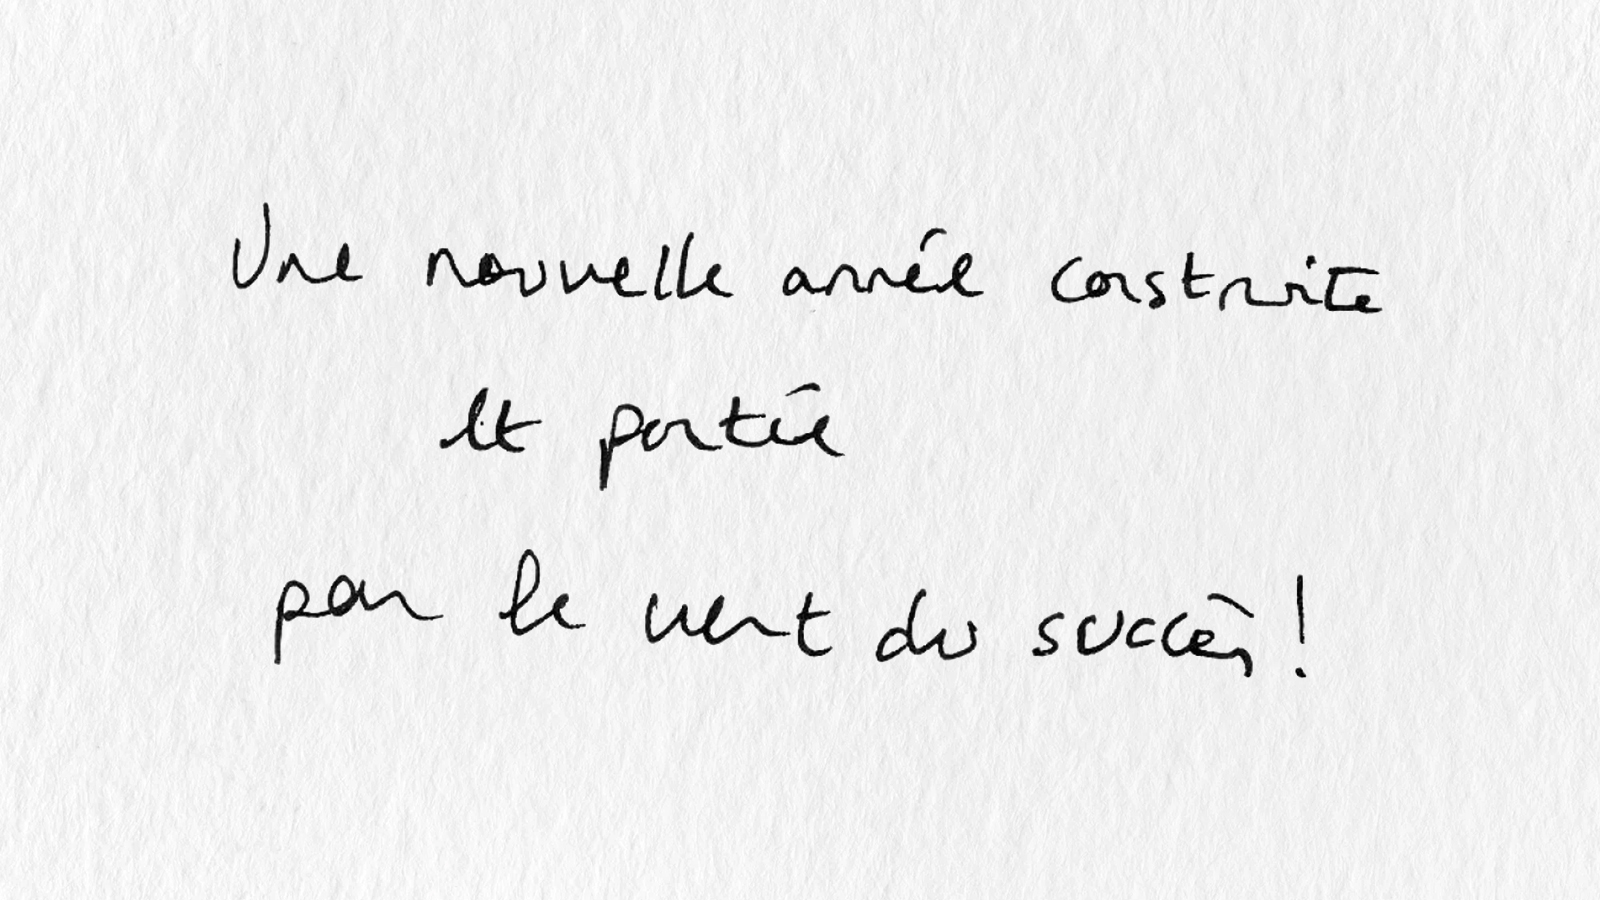 Une nouvelle année construite
et portée
par le vent du succès !